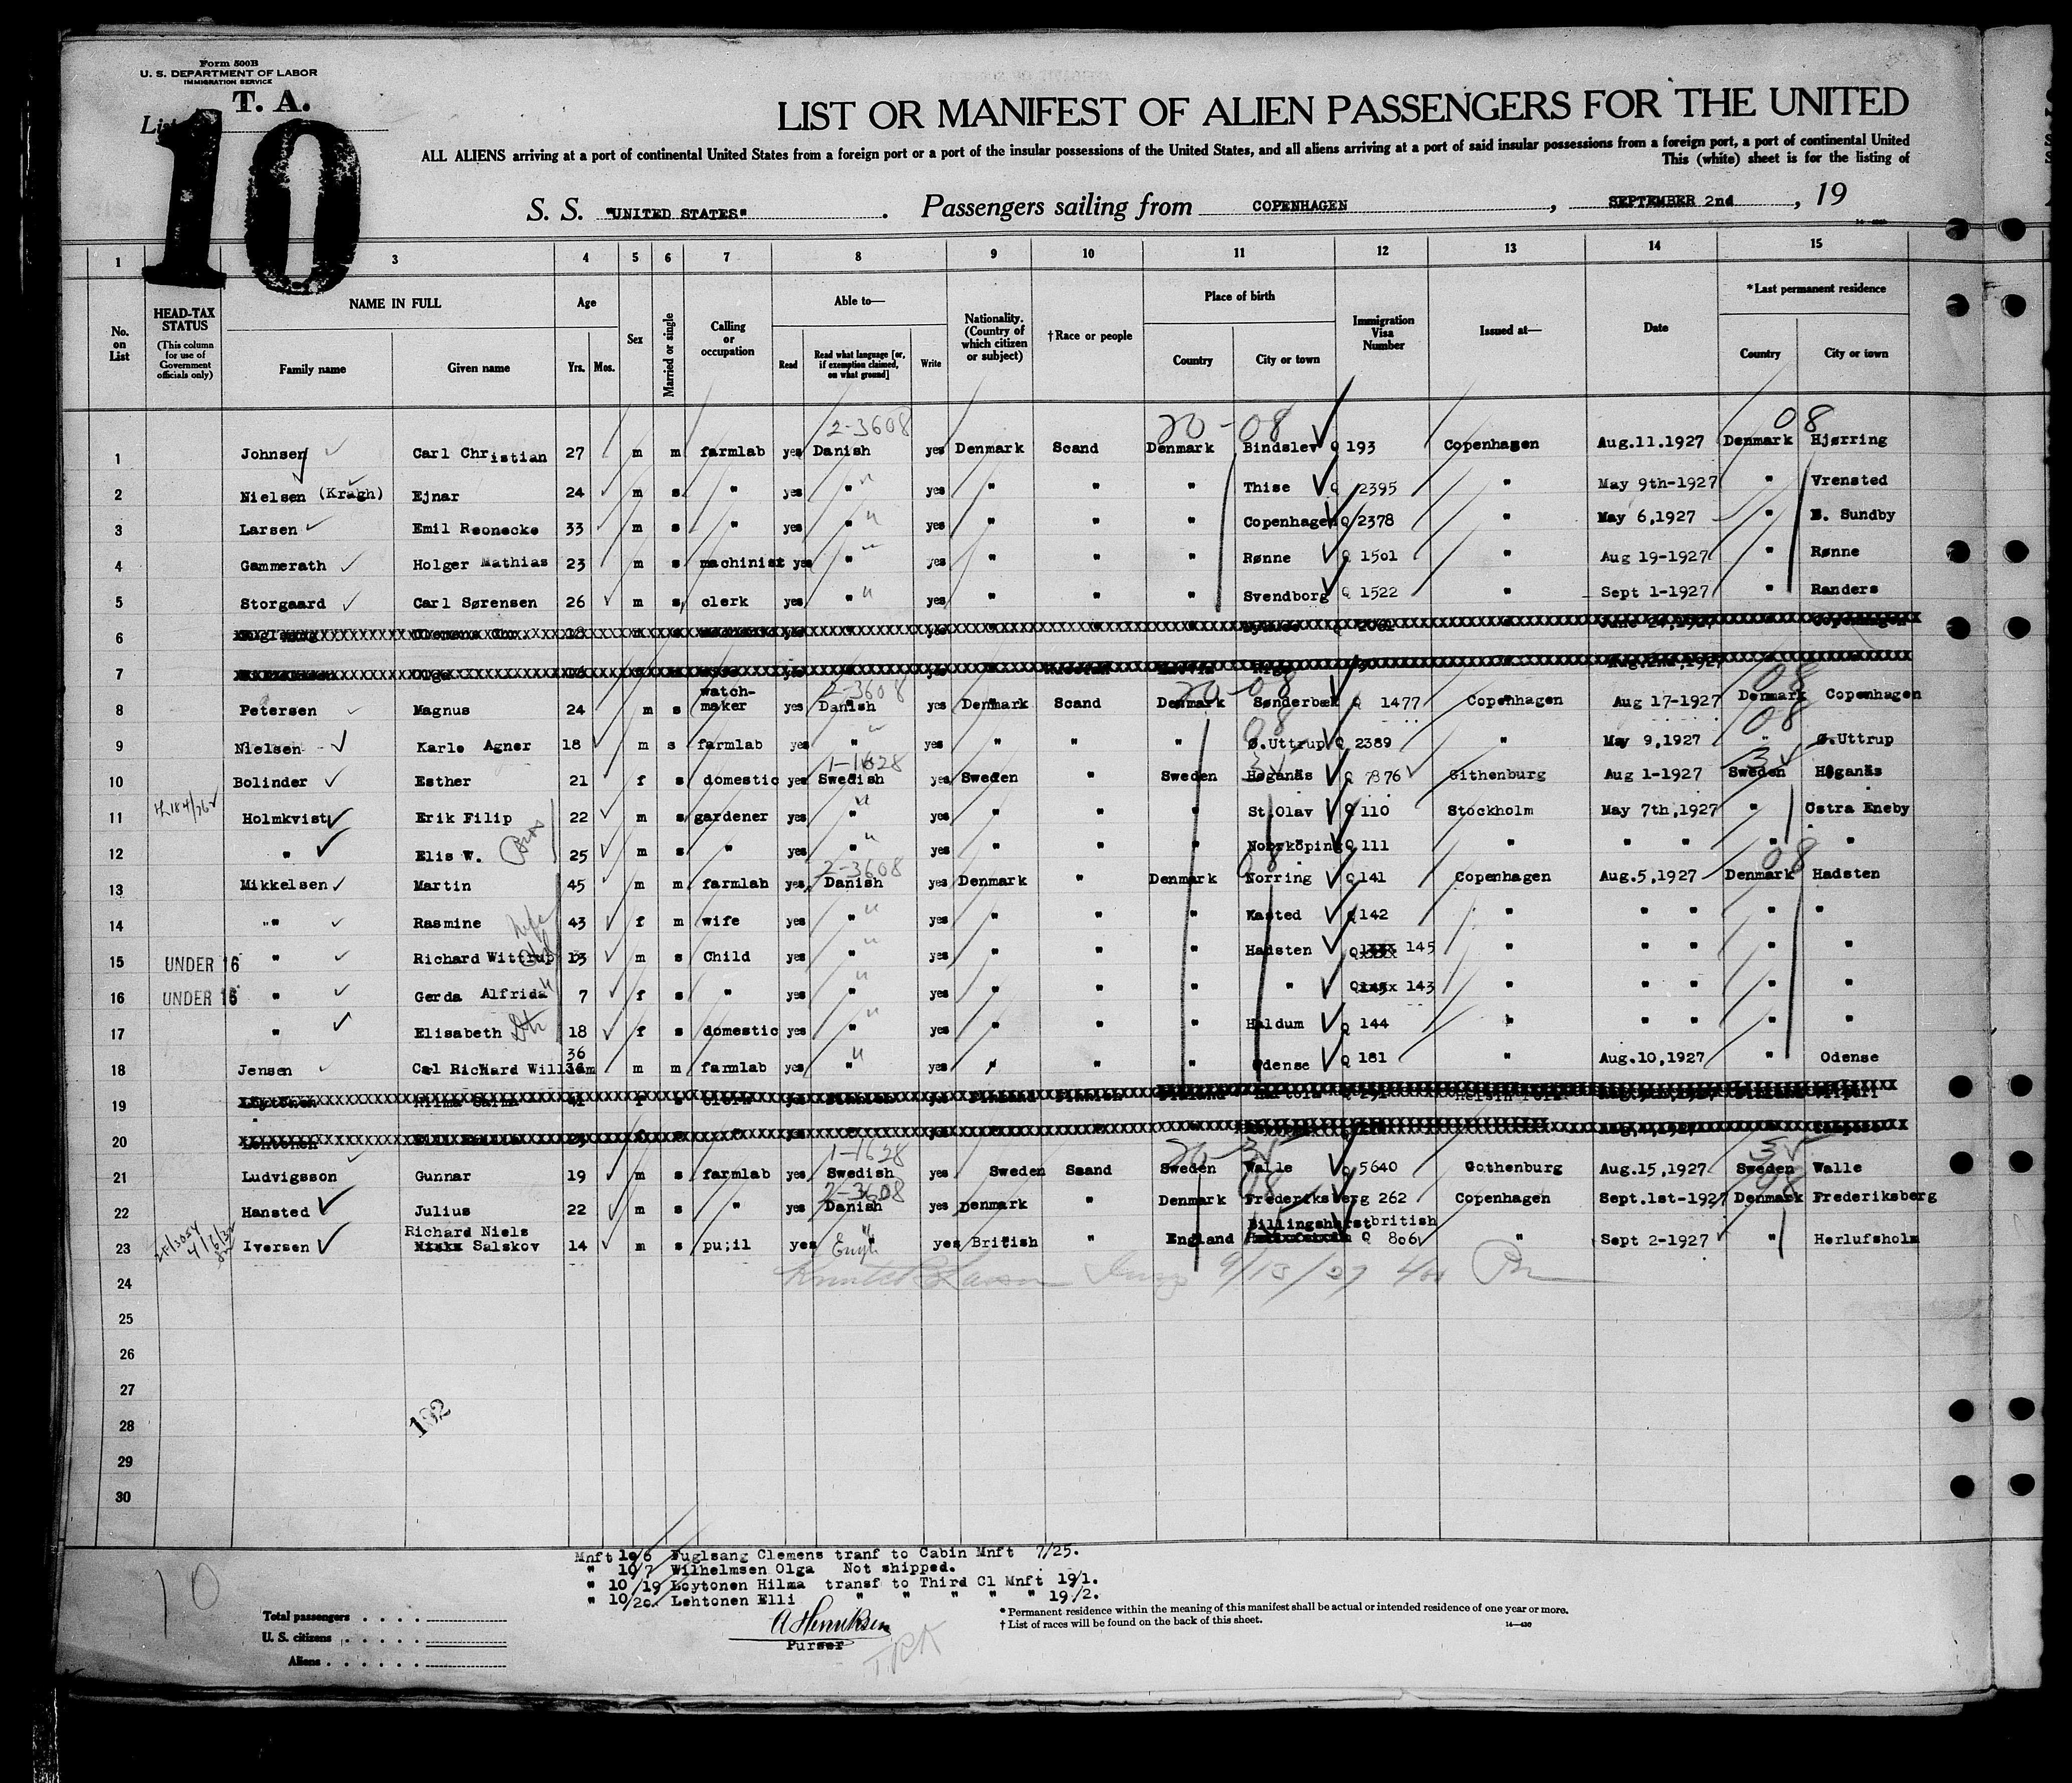 Form 500B
U. S. DEPARTMENT OF LABOR
IMMIGRATION SERVICE
T. A.
List
10
LIST OR MANIFEST OF ALIEN PASSENGERS FOR THE UNITED
ALL ALIENS arriving at a port of continental United States from a foreign port or a port of the insular possessions of the United States, and all aliens arriving at a port of said insular possessions from a foreign port, a port of continental United
This (white) sheet is for the listing of
S. S. "UNITED STATES" . Passengers sailing from COPENHAGEN , SEPTEMBER 2nd , 19
1 3 4 5 6 7 8 9 10 11 12 13 14 15
No. on List
HEAD-TAX STATUS
(This column for use of Government officials only)
NAME IN FULL
Family name Given name
Age
Yrs. Mos.
Sex
Married or single
Calling or occupation
Able to—
Read Read what language [or, if exemption claimed, on what ground] Write
Nationality. (Country of which citizen or subject)
†Race or people
Place of birth
Country City or town
Immigration Visa Number
Issued at—
Date
*Last permanent residence
Country City or town
2-3608 20-08 08
1 Johnsen Carl Christian 27 m m farmlab yes Danish yes Denmark Scand Denmark Bindslev Q 193 Copenhagen Aug.11.1927 Denmark Hjørring
2 Nielsen (Kragh) Ejnar 24 m s " yes " yes " " " Thise Q 2395 " May 9th-1927 " Vrensted
3 Larsen Emil Reonecke 33 m s " yes " yes " " " Copenhagen Q 2378 " May 6,1927 " E. Sundby
4 Gammerath Holger Mathias 23 m s machinist yes " yes " " " Rønne Q 1501 " Aug 19-1927 " Rønne
5 Storgaard Carl Sørensen 26 m s clerk yes " yes " " " Svendborg Q 1522 " Sept 1-1927 " Randers
6
7
2-3608 20-08 08
8 Petersen Magnus 24 m s watch-maker yes Danish yes Denmark Scand Denmark Sønderbæk Q 1477 Copenhagen Aug 17-1927 Denmark Copenhagen
08 08
9 Nielsen Karlo Agner 18 m s farmlab yes " yes " " " Ø.Uttrup Q 2389 " May 9,1927 " Ø.Uttrup
1-1628
10 Bolinder Esther 21 f s domestic yes Swedish yes Sweden " Sweden Høganäs Q 7876 Githenburg Aug 1-1927 Sweden Høganäs
11 Holmkvist Erik Filip 22 m s gardener yes " yes " " " St.Olav Q 110 Stockholm May 7th,1927 " Ostra Eneby
12 " Elis W. 25 m s " yes " yes " " " Norrköping Q 111 " " " " "
2-3608 08 08
13 Mikkelsen Martin 45 m m farmlab yes Danish yes Denmark " Denmark Norring Q 141 Copenhagen Aug.5,1927 Denmark Hadsten
14 "" Rasmine 43 f m wife yes " yes " " " Kasted Q 142 " " " " "
15 UNDER 16 " Richard Wittrup 13 m s Child yes " yes " " " Hadsten Q 145 " " " " "
16 UNDER 16 " Gerda Alfrida 7 f s " yes " yes " " " " Q 143 " " " " "
17 " Elisabeth 18 f s domestic yes " yes " " " Haldum Q 144 " " " " "
18 Jensen Carl Richard William 36 m m farmlab yes " yes " " " Odense Q 181 " Aug.10,1927 " Odense
19
20
1-1628
21 Ludvigsson Gunnar 19 m s farmlab yes Swedish yes Sweden Scand Sweden Walle Q 5640 Gothenburg Aug.15,1927 Sweden Walle
2-3608 08 08
22 Hansted Julius 22 m s " yes Danish yes Denmark " Denmark Frederiksberg 262 Copenhagen Sept.1st-1927 Denmark Frederiksberg
23 Iversen Richard Niels Salskov 14 m s pu;il yes " Engl yes British " England Billingshurst british Q 806 " Sept 2-1927 " Herlufsholm
9/13/27
24
25
26
27
28
192
29
30
Mnft 10/6 Fuglsang Clemens tranf to Cabin Mnft 7/25.
" 10/7 Wilhelmsen Olga Not shipped.
" 10/19 Loytonen Hilma transf to Third Cl Mnft 19/1.
" 10/20. Lehtonen Elli " " " " " 19/2.
10
Total passengers
U. S. citizens
Aliens
A Henriksen
Purser
* Permanent residence within the meaning of this manifest shall be actual or intended residence of one year or more.
† List of races will be found on the back of this sheet.
14—430